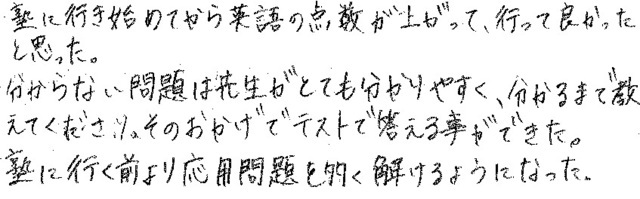 塾に行き始めてから英語の点数が上がって、行って良かった
と思った。
分からない問題は先生がとても分かりやすく、分かるまで教
えてくださり。そのおかげでテストで答える事ができた。
塾に行く前より応用問題を多く解けるようになった。